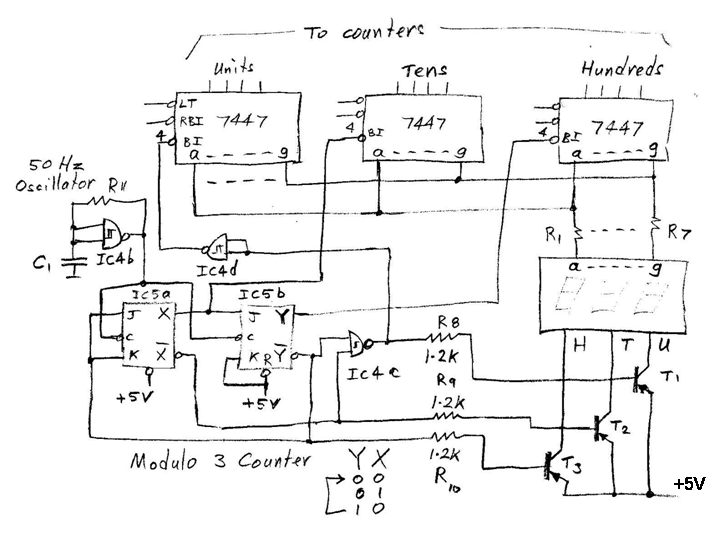 To counters
Units
Tens
Hundreds
LT
RBI
4
BI
7447
a g
4
BI
7447
a g
4
BI
7447
a g
50 Hz
Oscillator
R11
C1
IC4b
IC4d
R1
R7
a g
H T U
IC5a
J X
C
K X̅
+5V
IC5b
J Y
C
K R Y̅
+5V
IC4c
R8
1.2K
R9
1.2K
1.2K
R10
T1
T2
T3
+5V
Modulo 3 Counter
Y X
0 0
0 1
1 0